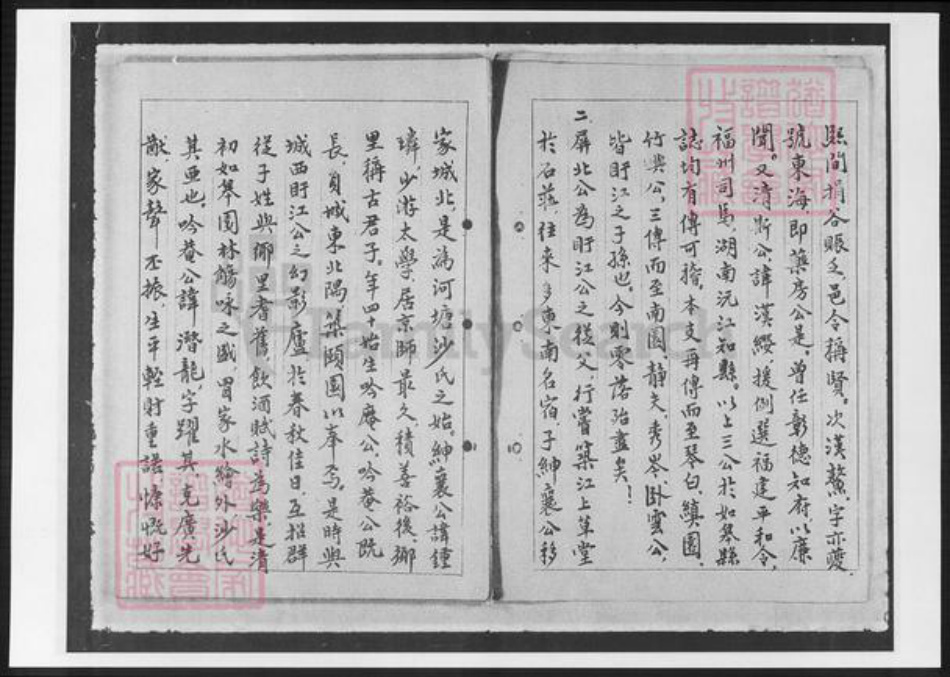 熙間捐谷賑乏,邑令稱賢。次漢鰲,字亦夔,
號東海,即藥房公是。曾任彰德知府,以廉
聞。又清斯公,諱漢纓,援例選福建平和令,
福州司馬,湖南沅江知縣。以上三公於如皋縣
誌均有傳可稽。本支再傳而至琴白、縝園、
竹嶼公,三傳而至南園、靜夫、秀岑、卧雲公,
皆盱江之子孫也。今則零落殆盡矣!
二、屏北公為盱江公之從父,行嘗築江上草堂
於石莊,往來多東南名宿,子紳襄公移
家城北,是為河塘沙氏之始。紳襄公諱鍾
璘,少游太學居京師最久,積善裕後,鄉
里稱古君子。年四十始生吟庵公,吟庵公既
長,負城東北隅築頤園以奉焉。是時與
城西盱江公之幻影廬於春秋佳日,互招群
從子姓與鄉里耆舊,飲酒賦詩為樂,是清
初如皋園林觴咏之盛,冒家水繪外沙氏
其亞也。吟菴公諱潛龍,字躍其,克廣先
猷,家聲丕振,生平輕財重諾,慷慨好
FamilySearch